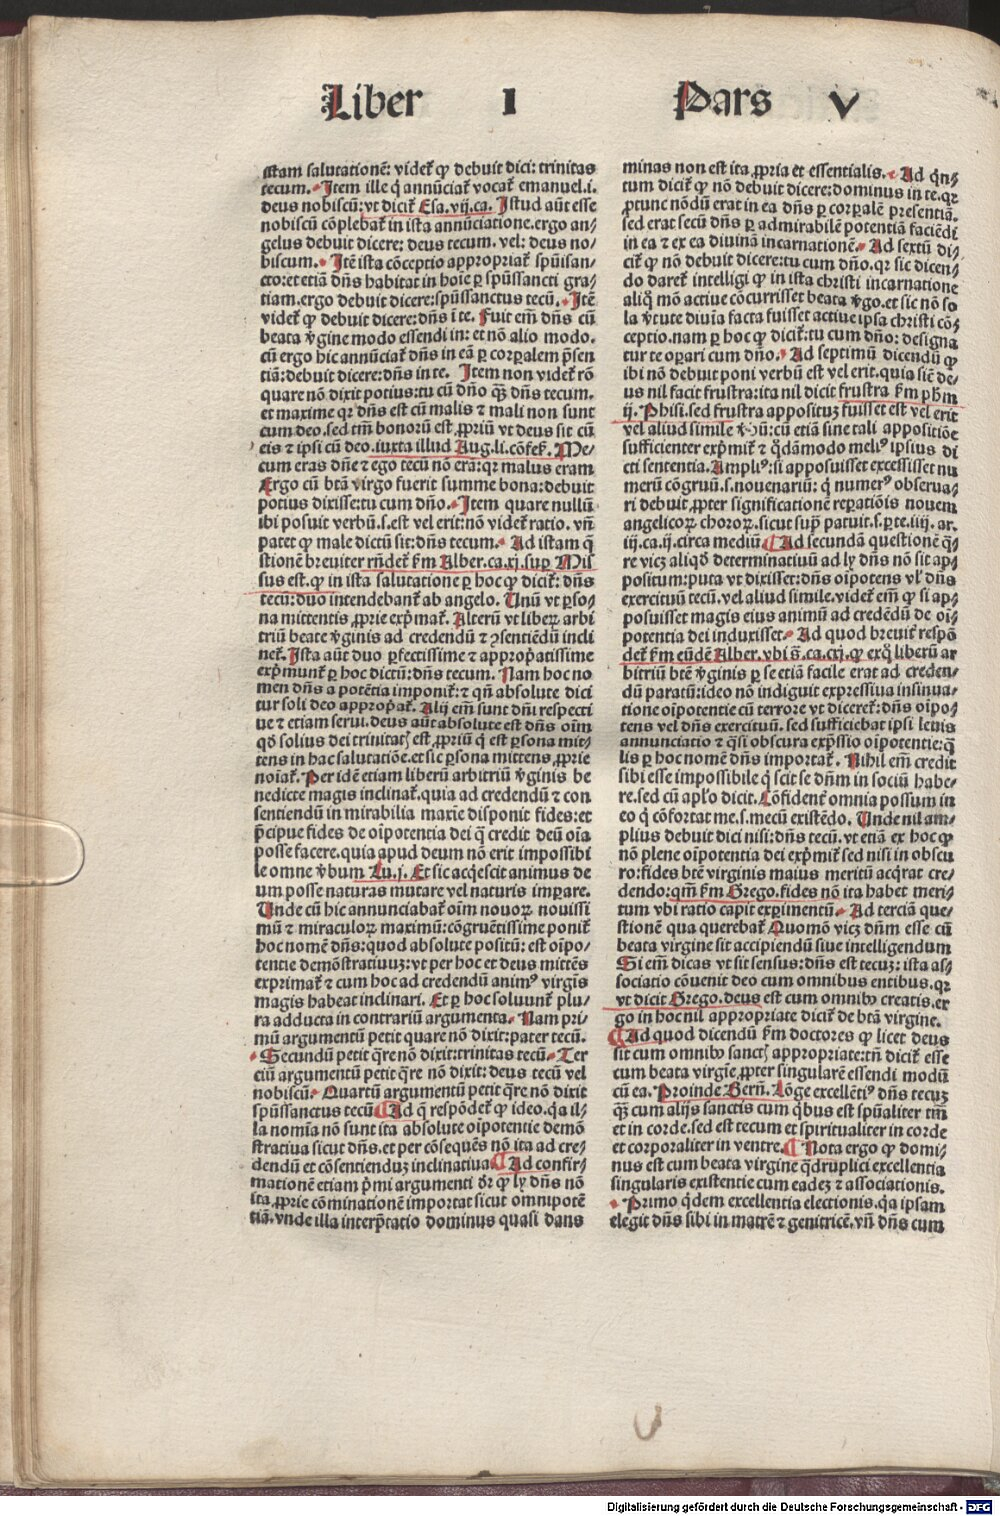 Liber I Pars V
istam salutationē: videt̄ ꝙ debuit dici: trinitas
tecum. Item ille q̄ annūciat̄ vocat̄ emanuel.i.
deus nobiscū: vt dicit̄ Esa.vij.ca. Istud aūt esse
nobiscū cōplebat̄ in ista annūciatione.ergo an⸗
gelus debuit dicere: deus tecum. vel: deus no⸗
biscum. Itē ista cōceptio appropriat̄ spūisan⸗
cto:et etiā dn̄s habitat in hoīe ꝑ spūssancti gra⸗
tiam.ergo debuit dicere:spūssanctus tecū. Itē
videt̄ ꝙ debuit dicere: dn̄s ī te. Fuit em̄ dn̄s cū
beata v̄gine modo essendi in: et nō alio modo.
cū ergo hic annūciat̄ dn̄s in eā ꝑ corꝑalem p̄sen
tiā: debuit dicere: dn̄s in te. Item non videt̄ rō
quare nō dixit potius: tu cū dn̄o q̄ꝫ dn̄s tecum.
et maxime qꝛ dn̄s est cū malis ⁊ mali non sunt
cum deo.sed tm̄ bonorū est ꝓpriū vt deus sit cū
eis ⁊ ipsi cū deo.iuxta illud Aug.li.cōfes̄. Me⸗
cum eras dn̄e ⁊ ego tecū nō erā:qꝛ malus eram
Ergo cū btā virgo fuerit summe bona:debuit
potius dixisse:tu cum dn̄o. Item quare nullū
ibi posuit verbū.s.est vel erit:nō videt̄ ratio. vn̄
patet ꝙ male dictū sit: dn̄s tecum. Ad istam q̄
stionē breuiter rn̄det̄ km̄ Alber.ca.xj.suꝑ Mis
sus est.ꝙ in ista salutatione ꝑ hoc ꝙ dicit̄: dn̄s
tecū: duo intendebant̄ ab angelo. Unū vt ꝑso⸗
na mittentis ꝓprie exp̄mat̄. Alterū vt liberꝫ arbi
triū beate v̄ginis ad credendū ⁊ ꝯsentiēdū incli
net̄. Ista aūt duo ꝑfectissime ⁊ approp̄atissime
exp̄munt̄ ꝑ hoc dictū: dn̄s tecum. Nam hoc no
men dn̄s a potētia imponit̄:⁊ qn̄ absolute dici
tur soli deo approp̄at̄. Alij em̄ sunt dn̄i respecti
ue ⁊ etiam serui. deus aūt absolute est dn̄s oīm
qd̄ solius dei trinitatꝭ est ꝓpriū q̄ est ꝑsona mit⸗
tens in hac salutatiōe.et sic ꝑsona mittens ꝓprie
noīat̄. Per idē etiam liberū arbitriū v̄ginis be
nedicte magis inclinat̄.quia ad credendū ⁊ con
sentiendū in mirabilia maxīe disponit fides:et
p̄cipue fides de oīpotentia dei q̄ credit deū oīa
posse facere.quia apud deum nō erit impossibi
le omne v̄bum Lu.j. Et sic acq̄escit animus de
um posse naturas mutare vel naturis imꝑare.
Unde cū hic annunciabat̄ oīm nouoꝝ nouissi
mū ⁊ miraculoꝝ maximū: cōgruētissime ponit̄
hoc nomē dn̄s: quod absolute positū: est oīpo⸗
tentie demōstratiuuꝫ: vt per hoc et deus mittēs
exprimat̄ ⁊ cum hoc ad credendū animꝰ virgīs
magis habeat inclinari. Et ꝑ hoc soluunt̄ plu⸗
ra adducta in contrariū argumenta. Nam pri⸗
mū argumentū petit quare nō dixit: pater tecū.
Secundū petit q̄re nō dixit:trinitas tecū. Ter
ciū argumentū petit q̄re nō dixit: deus tecū vel
nobiscū. Quartū argumentū petit q̄re nō dixit
spūssanctus tecū. Ad q̄ respōdet̄ ꝙ ideo.qa il⸗
la nomīa nō sunt ita absolute oīpotentie demō
stratiua sicut dn̄s.et per cōsequēs nō ita ad cre⸗
dendū et cōsentienduꝫ inclinatiua. Ad confir⸗
mationē etiam p̄mi argumenti dr̄ ꝙ ly dn̄s nō
ita ꝓprie cōminationē importat sicut omnipotē
tiā.vnde illa interp̄tatio dominus quasi dans
minas non est ita ꝓpria et essentialis. Ad qn̄⸗
tum dicit̄ ꝙ nō debuit dicere:dominus in te.qꝛ
ꝓtunc nōdū erat in ea dn̄s ꝑ corꝑalē presentiā.
sed erat secū dn̄s ꝑ admirabilē potentiā faciēdi
in ea ⁊ ex ea diuinā incarnationē. Ad sextū di⸗
cit̄ ꝙ nō debuit dicere:tu cum dn̄o.qꝛ sic dicen⸗
do daret̄ intelligi ꝙ in ista christi incarnatione
aliq̄ mō actiue cōcurrisset beata v̄go.et sic nō so
la v̄tute diuīa facta fuisset actiue ipsa christi cō⸗
ceptio.nam ꝑ hoc ꝙ dicit̄:tu cum dn̄o: designa
tur te oꝑari cum dn̄o. Ad septimū dicendū ꝙ
ibi nō debuit poni verbū est vel erit.quia sic̄ de⸗
us nil facit frustra:ita nil dicit frustra km̄ ph̄m
ij. Phisi.sed frustra apposituꝫ fuisset est vel erit
vel aliud simile v̄bū: cū etiā sine tali appositiōe
sufficienter exp̄mit̄ ⁊ q̄dāmodo meliꝰ ipsius di
cti sententia. Ampliꝰ: si apposuisset excessisset nu
merū cōgruū.s.nouenariū: q̄ numerꝰ obserua⸗
ri debuit ꝓpter significationē reꝑatiōis nouem
angelicoꝝ choroꝝ.sicut sup̄ patuit.s.ꝑte.iiij. ar.
iij.ca.ij.circa mediū. Ad secundā questionē q̄⸗
re vicꝫ aliqd̄ determinatiuū ad ly dn̄s nō sit ap⸗
positum:puta vt dixisset: dn̄s oīpotens vl̄ dn̄s
exercituū tecū.vel aliud simile.videt̄ em̄ ꝙ si ap⸗
posuisset magis eius animū ad credēdū de oī⸗
potentia dei induxisset. Ad quod breuit̄ respō
det̄ km̄ eūdē Alber.vbi s̄.ca.cxj.ꝙ exq̄ liberū ar
bitriū btē v̄ginis ꝑ se etiā facile erat ad creden⸗
dū paratū:ideo nō indiguit expressiua insinua⸗
tione oīpotentie cū terrore vt diceret̄: dn̄s oīpo⸗
tens vel dn̄s exercituū. sed sufficiebat ipsi leuis
annunciatio ⁊ q̄si obscura exp̄ssio oīpotentie:q̄
lis ꝑ hoc nomē dn̄s importat̄. Nihil em̄ credit
sibi esse impossibile q̄ scit se dn̄m in sociū habe⸗
re.sed cū apl̄o dicit. Cōfident̄ omnia possum in
eo q̄ cōfortat me.s.mecū existēdo. Unde nil am⸗
plius debuit dici nisi: dn̄s tecū. vt etiā ex hoc ꝙ
nō plene oīpotentia dei exp̄mit̄ sed nisi in obscu
ro:fides btē virginis maius meritū acq̄rat cre⸗
dendo:qm̄ km̄ Grego.fides nō ita habet meri⸗
tum vbi ratio capit exꝑimentū. Ad terciā que⸗
stionē qua querebat̄ Quomō vicꝫ dn̄m esse cū
beata virgine sit accipiendū siue intelligendum
Si em̄ dicas vt sit sensus: dn̄s est tecuꝫ: ista as⸗
sociatio cōuenit deo cum omnibus entibus.qꝛ
vt dicit Grego.deus est cum omnibꝰ creatis.er
go in hoc nil appropriate dicit̄ de btā virgine.
Ad quod dicendū km̄ doctores ꝙ licet deus
sit cum omnibꝰ sanctꝭ appropriate:tn̄ dicit̄ esse
cum beata virgīe ꝓpter singularē essendi modū
cū ea. Proinde Bern̄. Lōge excellētiꝰ dn̄s tecuꝫ
q̄ꝫ cum alijs sanctis cum q̄bus est spūaliter tm̄
et in corde.sed est tecum et spiritualiter in corde
et corporaliter in ventre. Nota ergo ꝙ domi⸗
nus est cum beata virgine q̄druplici excellentia
singularis existentie cum eadeꝫ ⁊ associationis.
Primo q̄dem excellentia electionis.qa ipsam
elegit dn̄s sibi in matrē ⁊ genitricē.vn̄ dn̄s cum
Digitalisierung gefördert durch die Deutsche Forschungsgemeinschaft - DFG